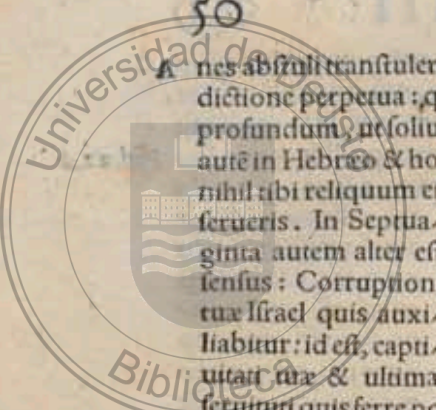 50
A nes absꝗ uli transtuler
dictione perpetua : q
profundum, ut soliu
autē in Hebræo & ho
nihil tibi reliquum es
serueris. In Septua-
ginta autem alter es
sensus : Corruption
tuæ Israel quis auxi-
liabitur : id est, capti-
uitati tuæ & ultima
seruituti quis ferre po
Universidad de
Biblio